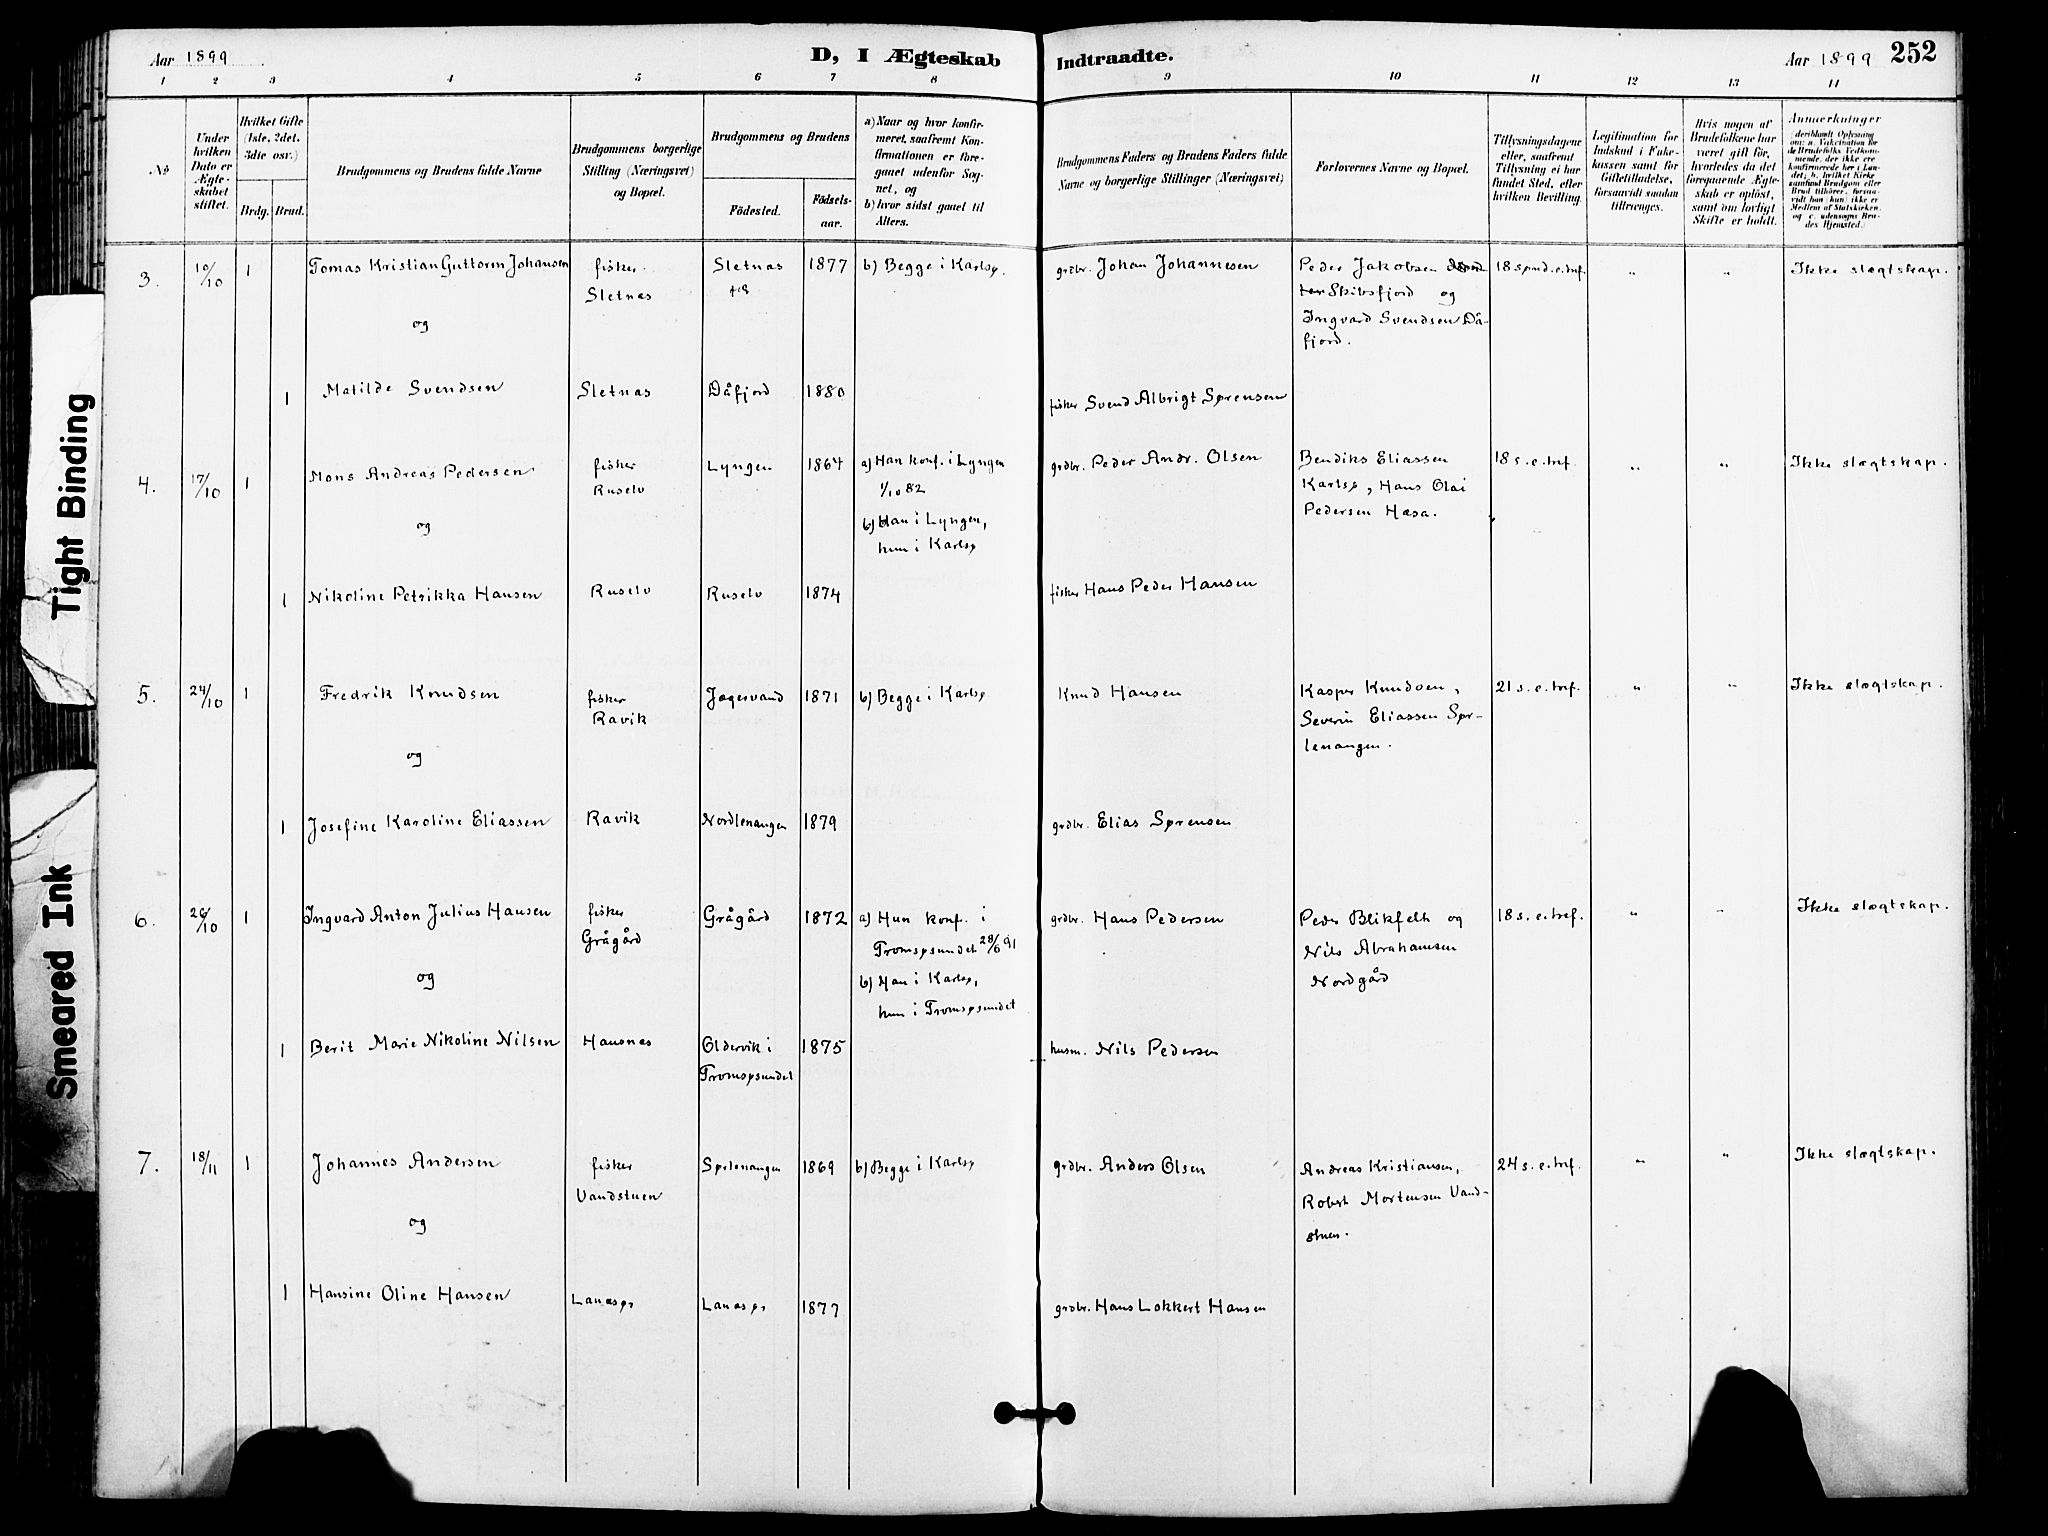 Aar 1899
D, I Ægteskab Indtraadte.
Aar 1899 252
1 2 3 4 5 6 7 8 9 10 11 12 13 14
No
Under hvilken Dato er Ægteskabet stiftet.
Hvilket Gifte (1ste, 2det, 3die osv.)
Brdg. Brud.
Brudgommens og Brudens fulde Navne
Brudgommens borgerlige Stilling (Næringsvei) og Bopæl.
Brudgommens og Brudens
Fødested. Fødselsaar.
a) Naar og hvor konfirmeret, saafremt Konfirmationen er foregaaet udenfor Sognet, og
b) hvor sidst gaaet til Alters.
Brudgommens Faders og Brudens Faders fulde Navne og borgerlige Stillinger (Næringsvei)
Forlovernes Navne og Bopæl.
Tillysningsdagene eller, saafremt Tillysning ei har fundet Sted, efter hvilken Bevilling.
Legitimation for Indskud i Enkekassen samt for Giftetilladelse, forsaavidt saadan tiltrænges.
Hvis nogen af Brudefolkene har været gift før, hvorledes da det foregaaende Ægteskab er opløst, samt om lovligt Skifte er holdt.
Anmerkninger
(deriblandt Oplysning om: a. Vakcination for de Brudefolks Vedkommende, der ikke ere konfirmerede her i Landet; b. hvilket Kirkesamfund Brudgom eller Brud tilhører, forsaavidt han (hun) ikke er Medlem af Statskirken, og c. udensogns Brudes Hjemsted.)
3. 10/10 1 Tomas Kristian Guttorm Johansen fisker Sletnæs 1877 b) Begge i Karlsø. grdbr. Johan Johannesen Peder Jakobsen 18 s.e.tref. " " Ikke slægtskap.
Sletnæs Skibsfjord og
og Ingvard Svendsen Då-
fjord.
1 Matilde Svendsen Sletnæs Dåfjord 1880 fisker Svend Albrigt Sørensen
4. 17/10 1 Mons Andreas Pedersen fisker Lyngen 1864 a) Han konf. i Lyngen grdbr. Peder Andr. Olsen Bendiks Eliassen 18 s.e.tref. " " Ikke slægtskap.
Ruselv 1/10 82 Karlsø, Hans Olai
og b) Han i Lyngen, Pedersen Hæsa.
hun i Karlsø
1 Nikoline Petrikka Hansen Ruselv Ruselv 1874 fisker Hans Peder Hansen
5. 24/10 1 Fredrik Knudsen fisker Jægervand 1871 b) Begge i Karlsø Knud Hansen Kasper Knudsen, 21 s.e.tref. " " Ikke slægtskap.
Ravik Severin Eliassen Sør-
og lenangen.
1 Josefine Karoline Eliassen Ravik Nordlenangen 1879 grdbr. Elias Sørensen
6. 26/10 1 Ingvard Anton Julius Hansen fisker Grågård 1872 a) Hun konf. i grdbr. Hans Pedersen Peder Blikfelt og 18 s.e.tref. " " Ikke slægtskap.
Grågård Tromsøsundet 28/6 91 Nils Abrahamsen
og b) Han i Karlsø, Nordgård
hun i Tromsøsundet
1 Berit Marie Nikoline Nilsen Hansnes Oldervik i 1875 husm. Nils Pedersen
Tromsøsundet
7. 18/11 1 Johannes Andersen fisker Sørlenangen 1869 b) Begge i Karlsø grdbr. Anders Olsen Andreas Kristiansen, 24 s.e.tref. " " Ikke slægtskap.
Vandstuen Robert Mortensen Vand-
og stuen.
1 Hansine Oline Hansen Lanæsør Lanæsør 1877 grdbr. Hans Lokkert Hansen
Tight Binding
Smeared Ink